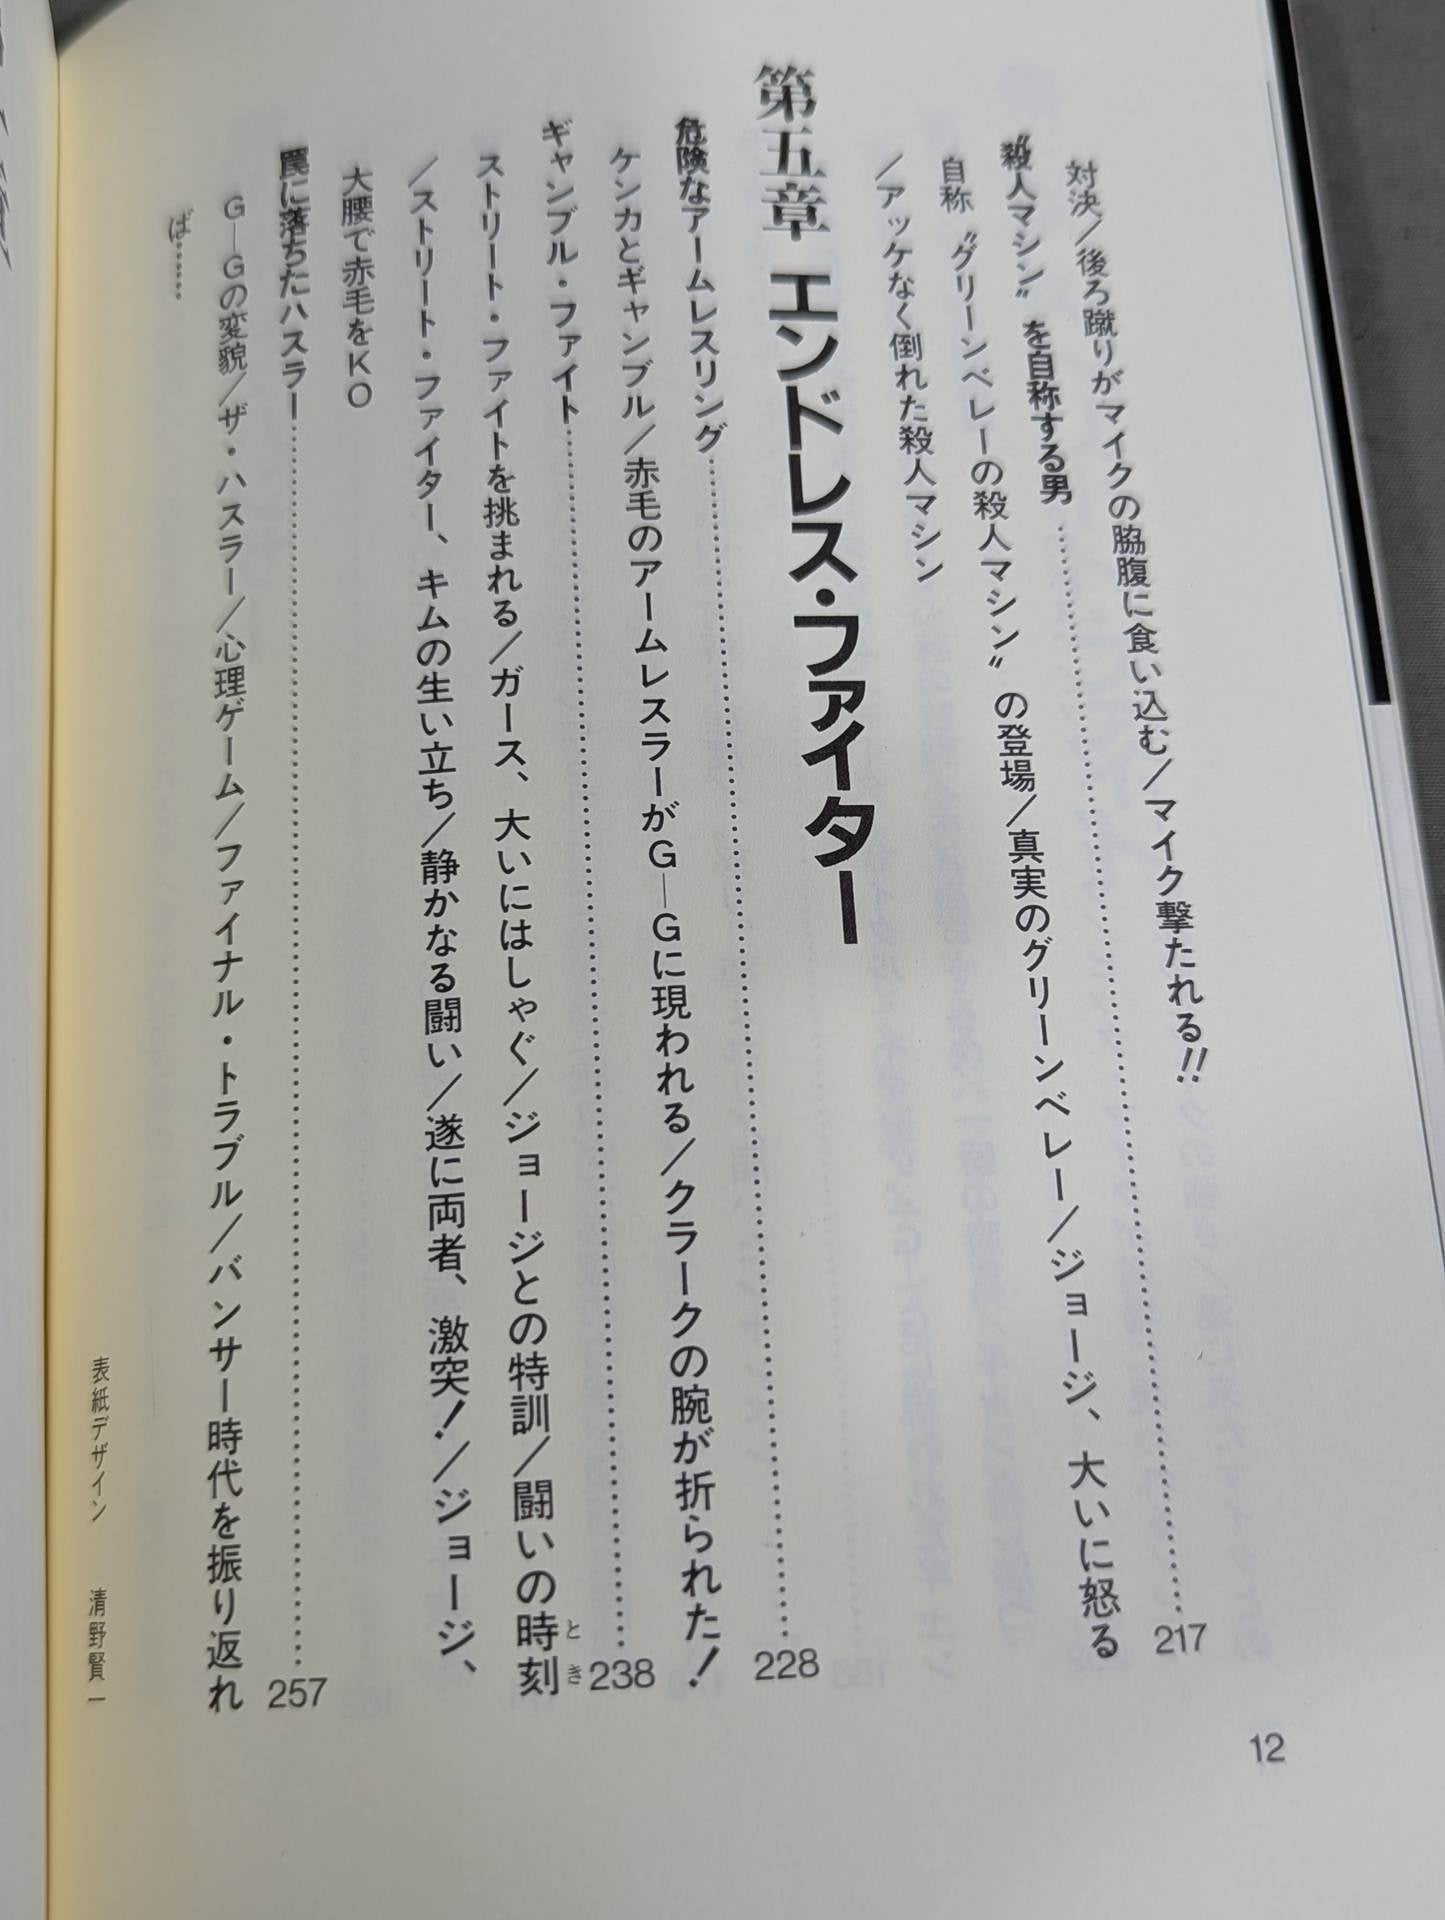 対決／後ろ蹴りがマイクの脇腹に食い込む／マイク撃たれる!!
〝殺人マシン〟を自称する男……………………217
自称〝グリーンベレーの殺人マシン〟の登場／真実のグリーンベレー／ジョージ、大いに怒る
／アッケなく倒れた殺人マシン
第五章 エンドレス・ファイター
危険なアームレスリング……………………228
ケンカとギャンブル／赤毛のアームレスラーがG―Gに現われる／クラークの腕が折られた！
ギャンブル・ファイト……………………238
ストリート・ファイトを挑まれる／ガース、大いにはしゃぐ／ジョージとの特訓／闘いの時刻
とき
／ストリート・ファイター、キムの生い立ち／静かなる闘い／遂に両者、激突！／ジョージ、
大腰で赤毛をKO
罠に落ちたハスラー……………………257
G―Gの変貌／ザ・ハスラー／心理ゲーム／ファイナル・トラブル／バンサー時代を振り返れ
ば……
表紙デザイン 清野賢一
12